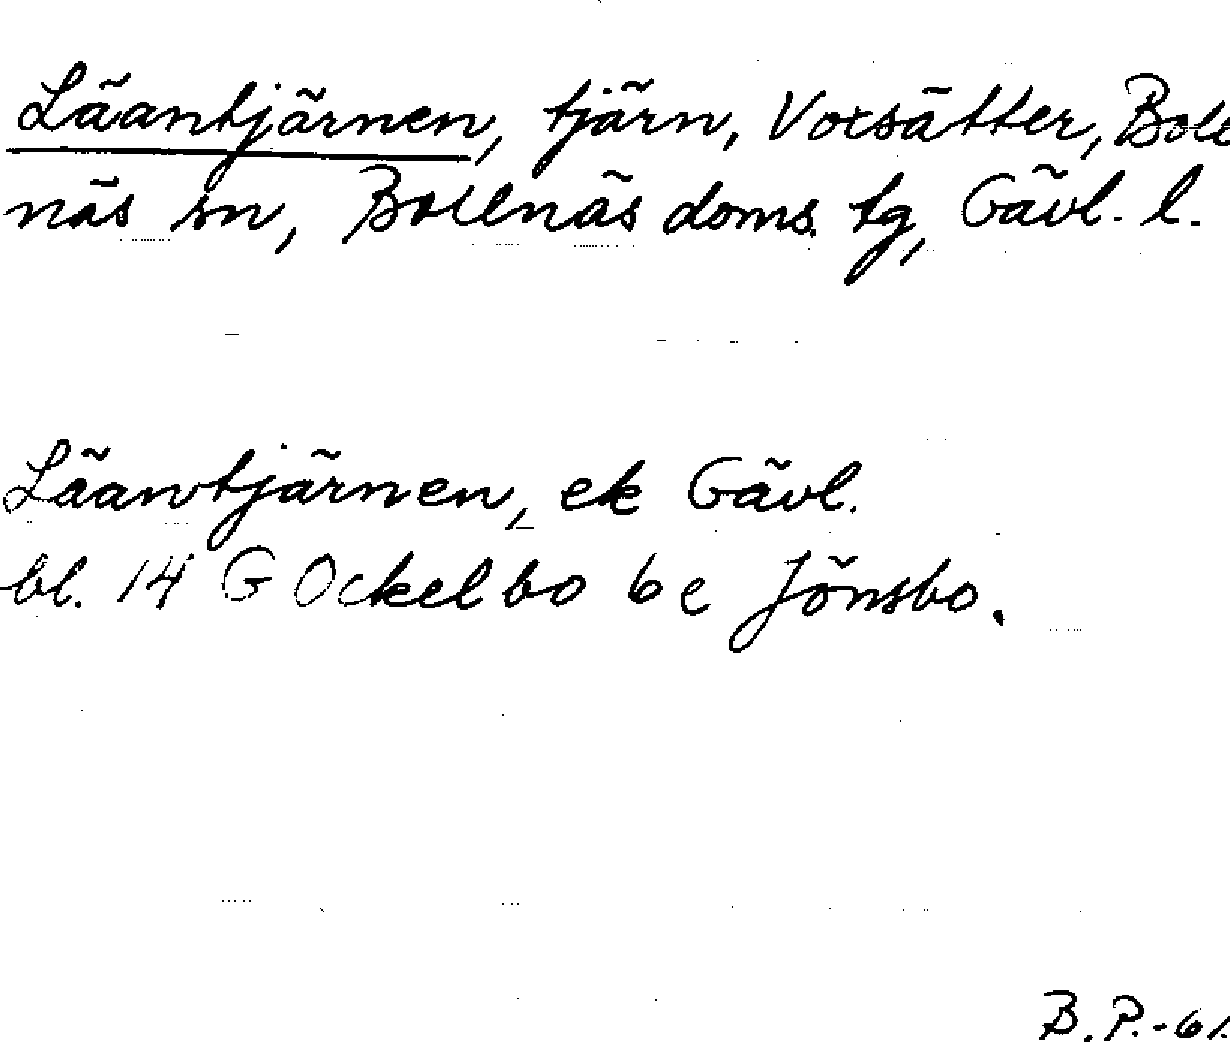 Lääntjärnen, tjärn, Voxsätter, Boll
näs sn, Bollnäs doms. tg, Gävl. l.
Lääntjärnen, ek Gävl.
bl. 14 G Ockelbo 6e Jönsbo.
B.P.-61.